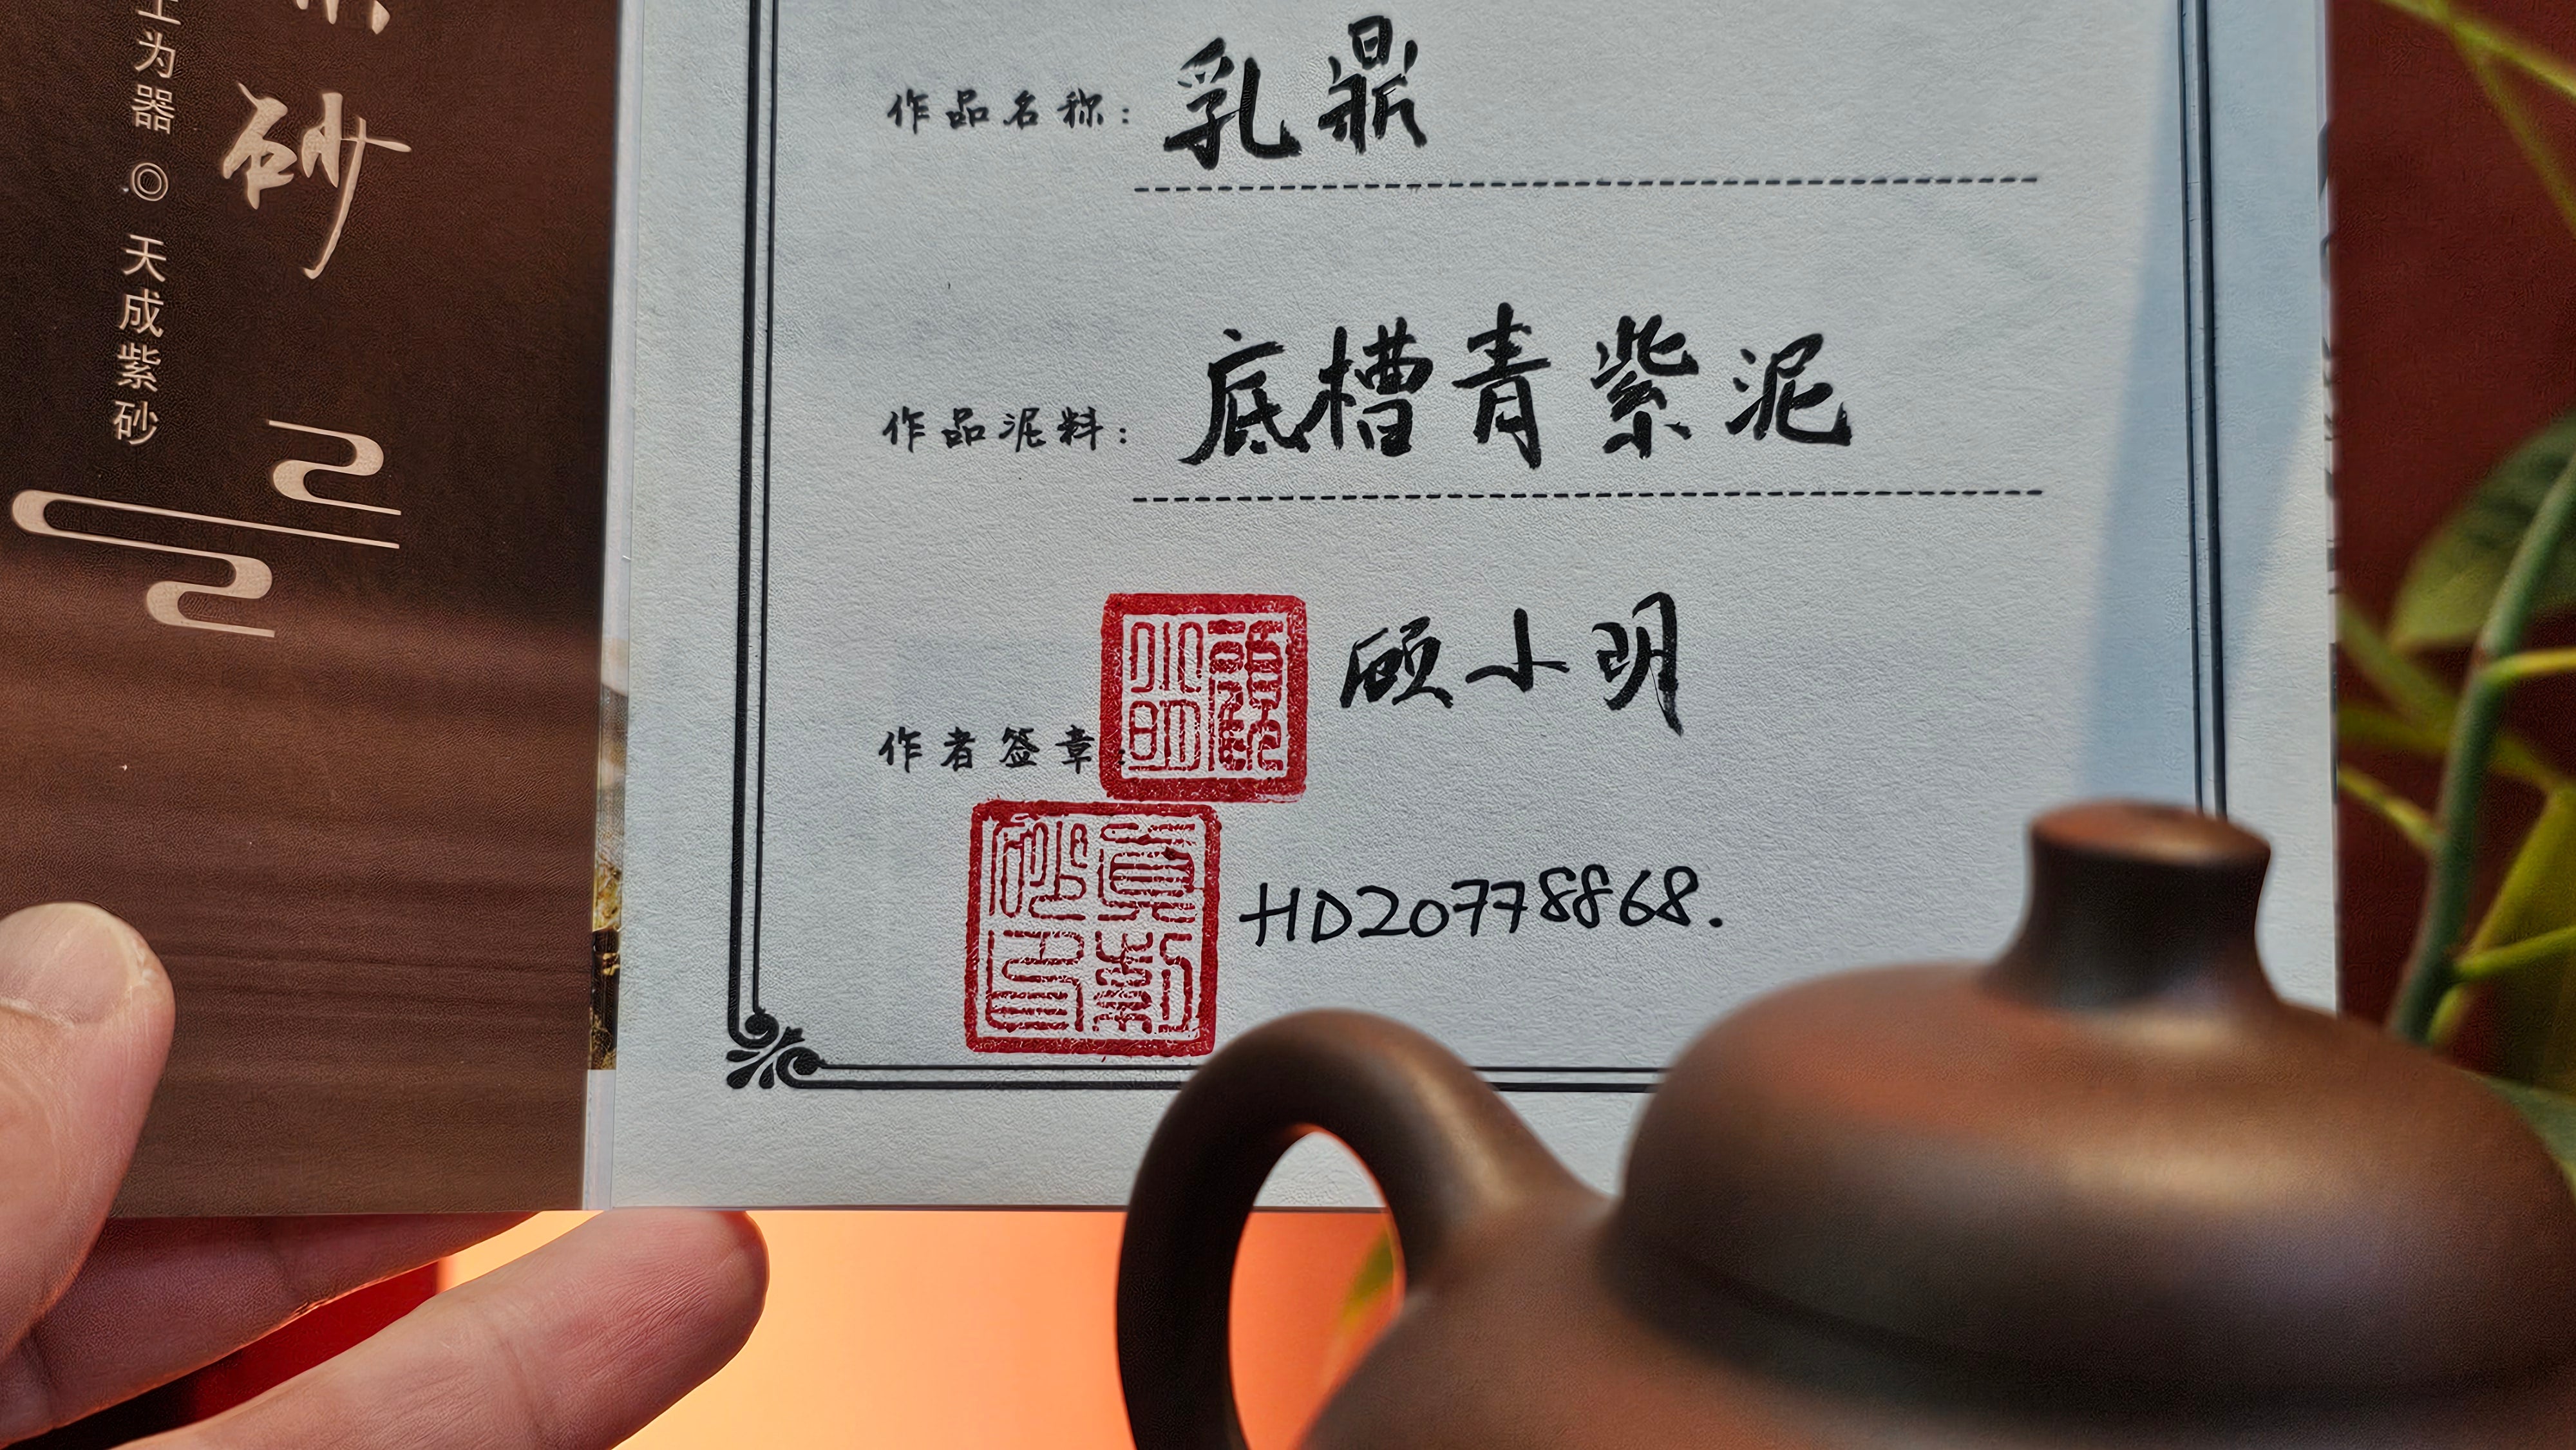 砂
为器◎天成紫砂
作品名称：乳鼎
作品泥料：底槽青紫泥
作者签章：顾小明
顧小明
真紫砂印
HD20778868.